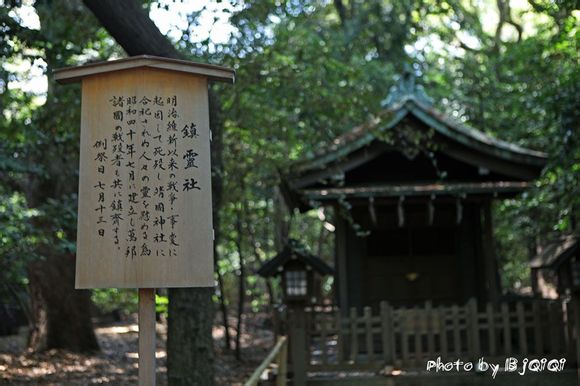 鎮霊社
明治維新以来の戦争・事変に
起因して死没し、靖国神社に
合祀されぬ人々の霊を慰める為
昭和四十年七月に建立し、万邦
諸国の戦没者も共に鎮斎する。
例祭日 七月十三日
Photo by BJQiQi ©